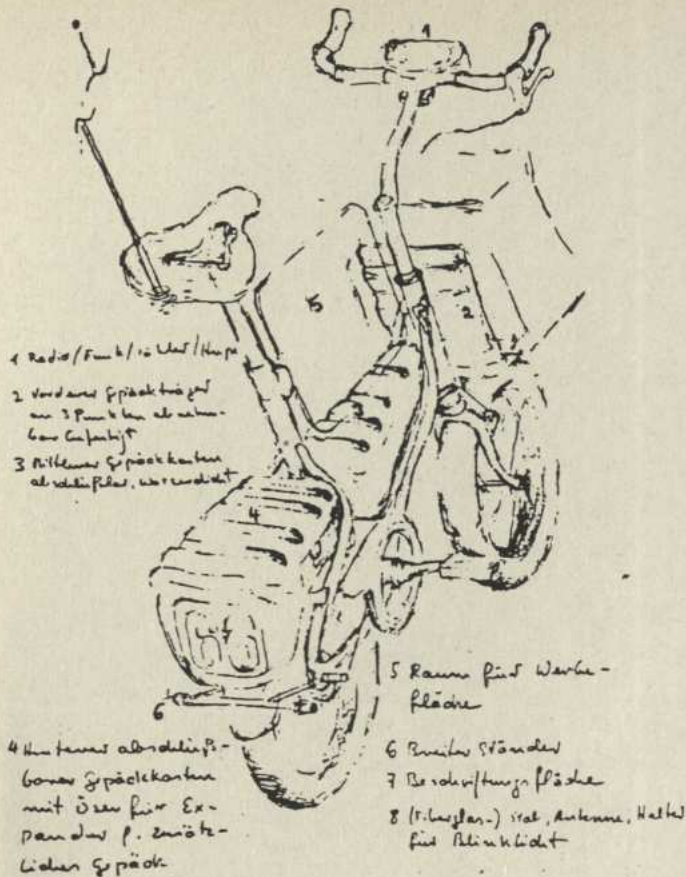 1
5
2
1 Radio/Funk/Zähler/Hupe
2 Vorderer Gepäckträger
an 3 Punkten abnehm-
bar befestigt
3 Mittlerer Gepäckkasten
abschließbar, wasserdicht
4
7
6
5 Raum für Werbe-
fläche
4 Hinterer abschließ-
barer Gepäckkasten
mit Ösen für Ex-
pander f. zusätz-
liches Gepäck
6 Breiter Ständer
7 Beschriftungsfläche
8 (Fiberglas-) Stab, Antenne, Halter
für Blinklicht